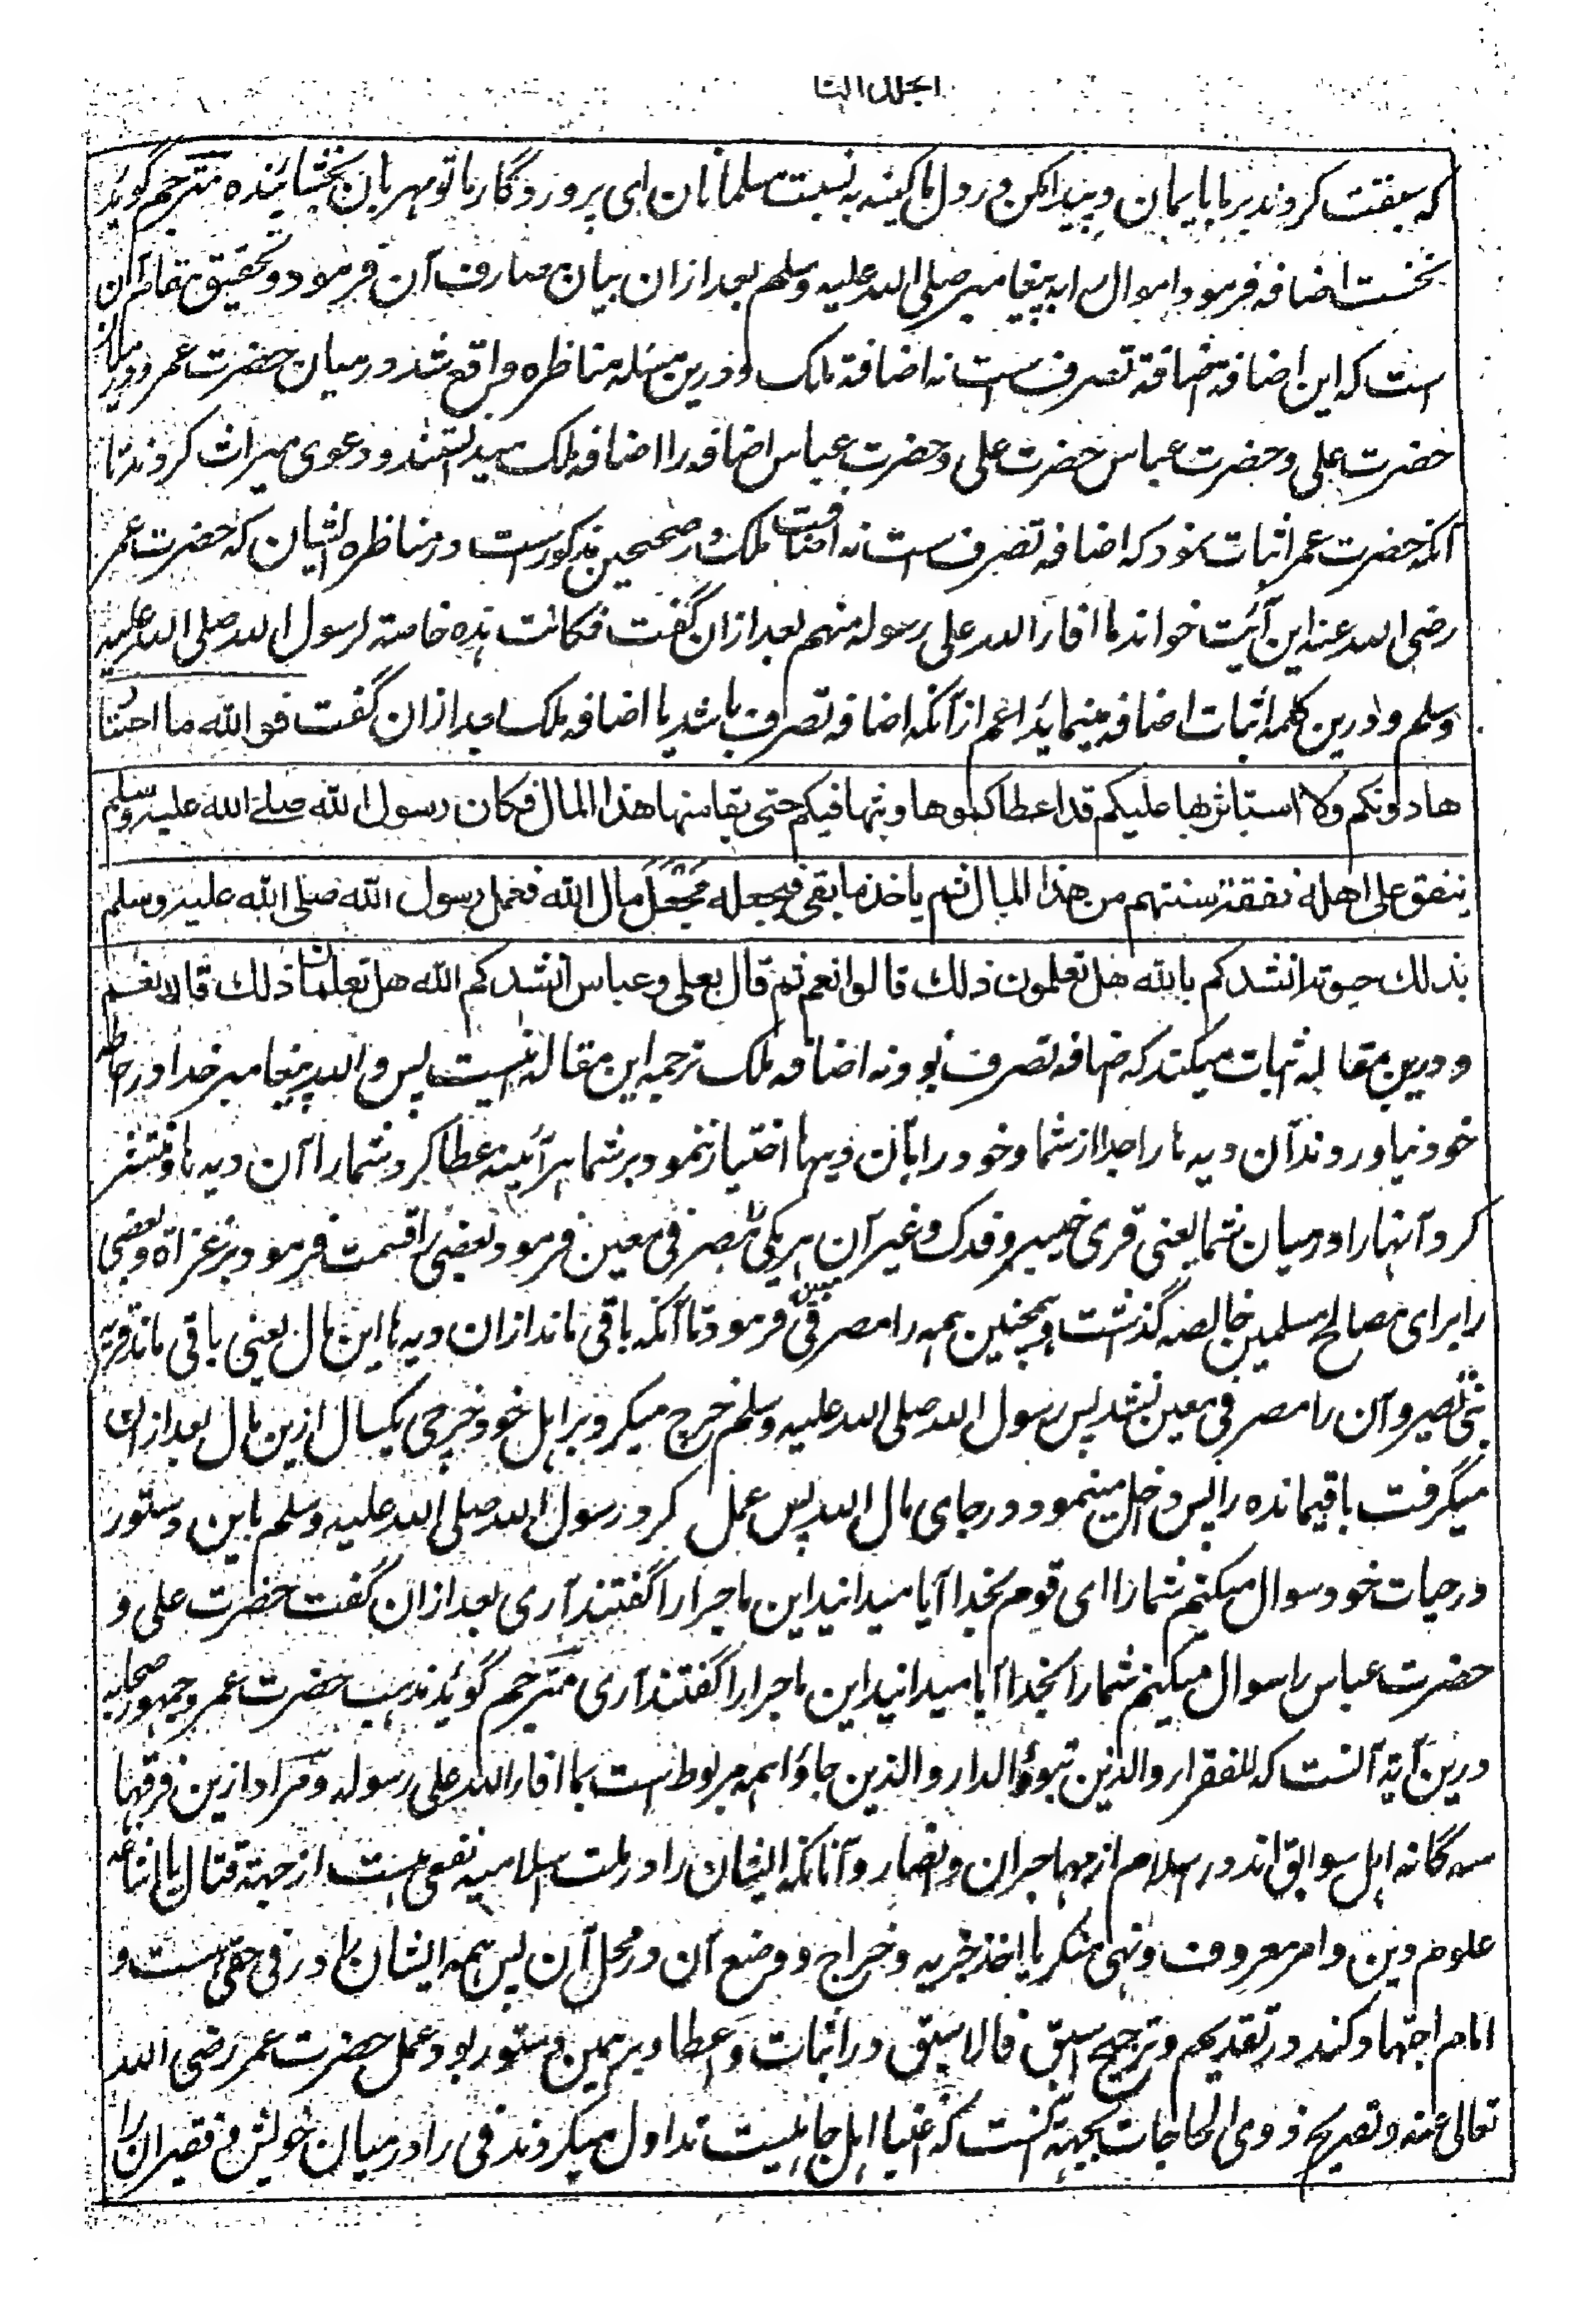 الجلد الثا
که سبقت کردند بر ما بایمان و پیدا مکن در دل ما کینه به نسبت مسلمانان ای پروردگار ما تو مهربان بخشاینده مترجم گوید
نخست اضافه فرمود اموال را به پیغامبر صلی الله علیه وسلم بعد ازان بیان مصارف آن فرمود و تحقیق مقام آن
است که این اضافة اضافة تصرف است نه اضافة ملک و درین مسئله مناظره واقع شد درمیان حضرت عمر و درمیان
حضرت علی و حضرت عباس حضرت علی و حضرت عباس اضافه را اضافه ملک میدانستند و دعوی میراث کردند تا
آنکه حضرت عمر اثبات نمود که اضافه تصرف است نه اضافت ملک در صحیحین مذکور است در مناظره ایشان که حضرت عمر
رضی الله عنه این آیت خواند ما افاء الله علی رسوله منهم بعد ازان گفت فکانت هذه خاصة لرسول الله صلی الله علیه
وسلم و درین کلمه اثبات اضافه مینماید اعم ازآنکه اضافه تصرف باشد یا اضافه ملک بعد ازان گفت فوالله ما احتازها
ها دونکم ولا استاثر بها علیکم قد اعطاکموها وبثها فیکم حتی بقا منها هذا المال فکان رسول الله صلی الله علیه وسلم
ینفق علی اهله نفقة سنتهم من هذا المال ثم یاخذ ما بقی فیجعله مجعل مال الله فعمل رسول الله صلی الله علیه وسلم
بذلك حیوته انشدکم بالله هل تعلمون ذلك قالوا نعم ثم قال بعلی وعباس انشدکم الله هل تعلمان ذلك قالا نعم
و درین مقاله اثبات میکند که اضافه تصرف بود نه اضافه ملک ترجمه این مقاله اینست پس والله پیغامبر خدا در حاطه
خود نیاورند آن دیه ها را جدا از شما و خود را بآن دیها اختیار ننمود بر شما هرآئینه عطا کرد شما را آن دیه ها و منتشر
کرد آنها را درمیان شما یعنی قری خیبر و فدک و غیر آن هر یکی را مصرفی معین فرمود بعضی را قسمت فرمود بر غزاة و بعضی
را برای مصالح مسلمین خالصه گذشت و همچنین همه را مصرفی مبین فرمود تا آنکه باقی ماند ازان دیه ها این مال یعنی باقی ماند قریه
بنی نضیر و آن را مصرفی معین نشد پس رسول الله صلی الله علیه وسلم خرچ میکرد بر اهل خود خرچی یکسال ازین مال بعد ازان
میگرفت باقیمانده را پس داخل مینمود در جای مال الله پس عمل کرد رسول الله صلی الله علیه وسلم باین دستور
در حیات خود سوال میکنم شما را ای قوم بخدا آیا میدانید این ماجرا را گفتند آری بعد ازان گفت حضرت علی و
حضرت عباس را سوال میکنم شما را بخدا آیا میدانید این ماجرا را گفتند آری مترجم گوید مذهب حضرت عمر و جمهور صحابه
درین آیة آنست که للفقراء والذین تبوؤ الدار والذین جاؤا همه مربوط است بما افاء الله علی رسوله و مراد ازین فرقها
سه گانه اهل سوابق اند در اسلام از مهاجران و انصار و آنانکه ایشان را در ملت اسلامیه نفعی هست از جهة قتال یا اشاعه
علوم دین و امر معروف و نهی منکر یا اخذ جزیه و خراج و وضع آن در محل آن پس همه ایشان را در فی حقی است و
امام اجتهاد کند در تقدیم و ترجیح اسبق فالاسبق در اثبات و اعطا و بر همین دستور بود عمل حضرت عمر رضی الله
تعالی عنه و تصریح ذوی الحاجات بجهة آنست که اغنیا اهل جاهلیت تداول میکردند فی را درمیان خویش و فقیران را